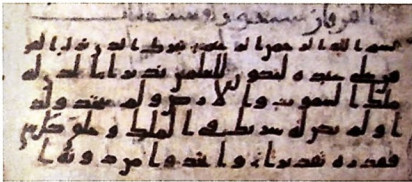 الفرقان سبعون و
بسم الله الرحمن الرحيم تبرك الذي نزل الفر
قن على عبده ليكون للعلمين نذيرا الذي له
ملك السموت والارض ولم يتخذ ولد
ا ولم يكن له شريك في الملك وخلق كل شي
فقدره تقديرا واتخذوا من دونه ا